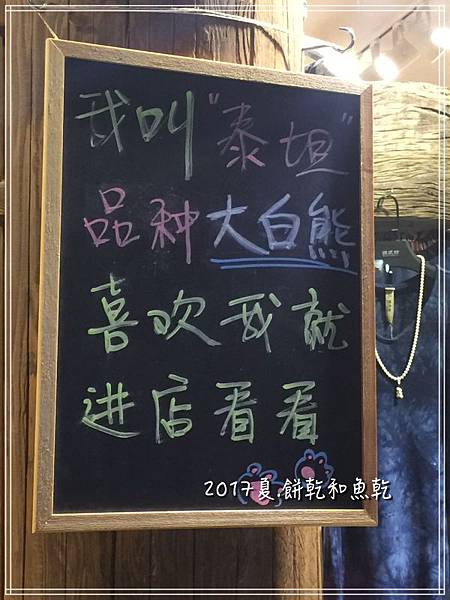 我叫"泰坦"
品种大白熊
喜欢我就
进店看看
2017夏.餅乾和魚乾